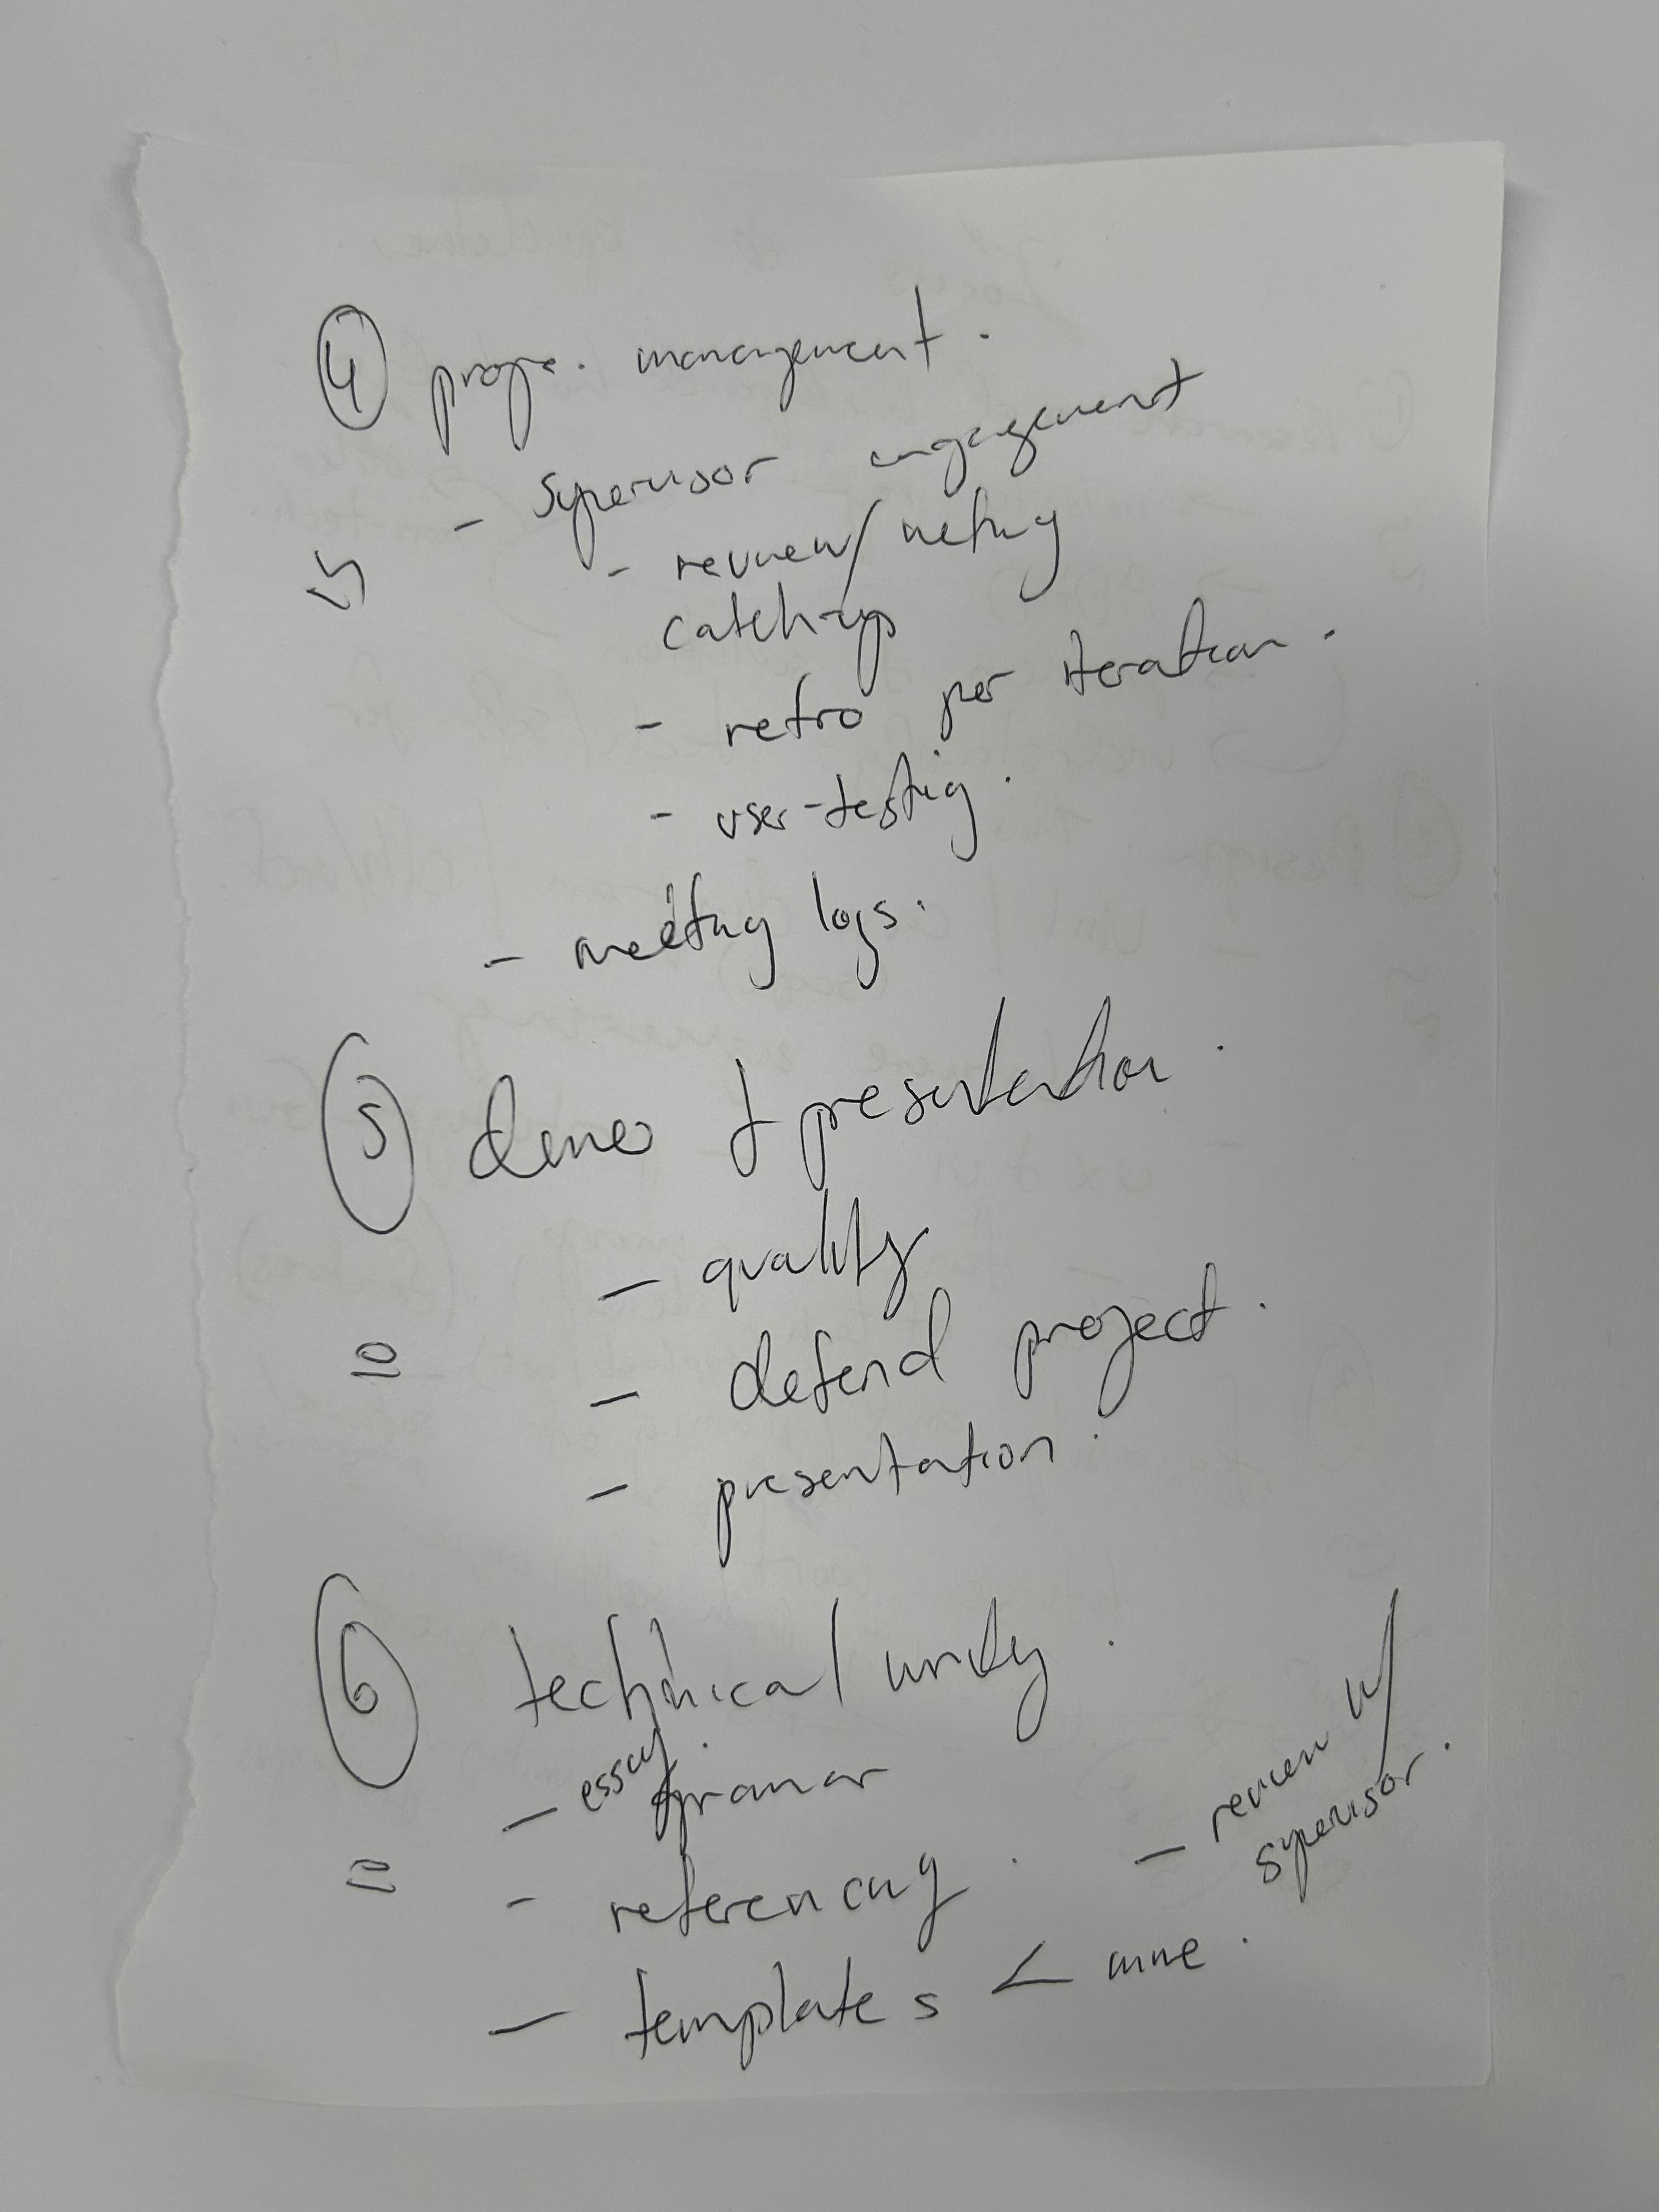 ④ proje. management.
- supervisor engagement
- review/meting
catch-up
15
- retro per iteration.
- user-testig.
- meeting logs.
⑤ demo & presentation.
- quality
10
- defend project.
- presentation.
⑥ technical writing.
- essay gramar
10
- referencing.
- review w/
supervisor.
- templates < mine.